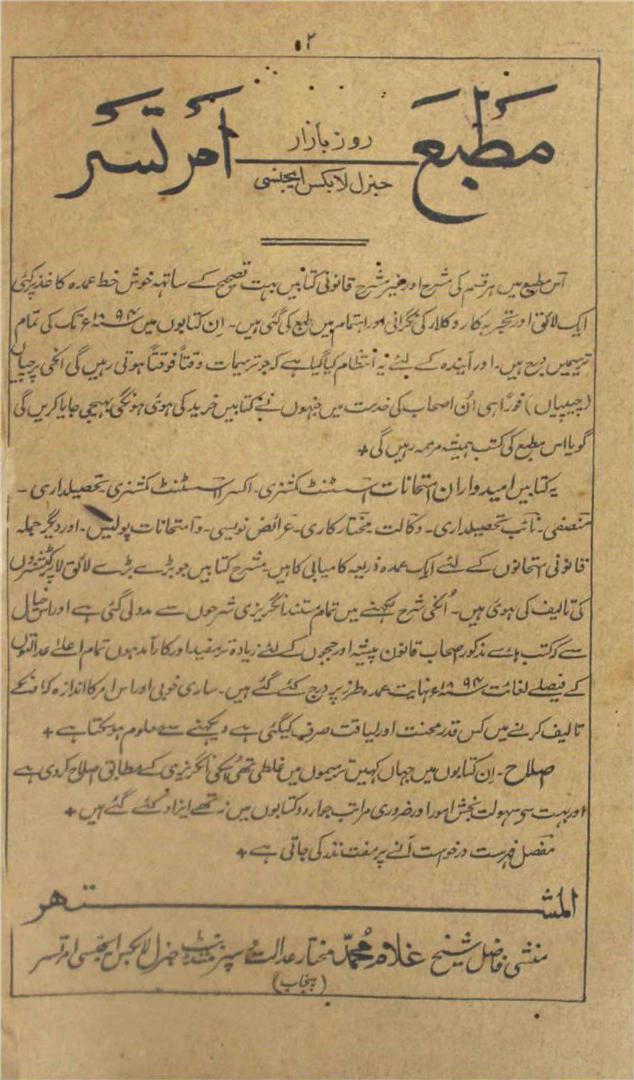 ۰۲
مطبع روز بازار امرتسر
جنرل لا بکس ایجنسی
اس مطبع میں ہر قسم کی شرح اور غیر مشرح قانونی کتابیں بہت تصحیح کے ساتھ خوش خط عمدہ کاغذ پر کئی
ایک لائق اور تجربہ کار وکلا کی نگرانی اور اہتمام میں طبع کی گئی ہیں۔ ان کتابوں میں ۱۸۹۴ء تک کی تمام
ترمیمیں درج ہیں۔ اور آیندہ کے لئے یہ انتظام کیا گیا ہے کہ جو ترمیمات وقتاً فوقتاً ہوتی رہیں گی انکی پرچیاں
(چیپیاں) فوراً ہی اُن اصحاب کی خدمت میں جنہوں نے کتابیں خرید کی ہوئی ہونگی بھیجی جایا کریں گی
گویا اس مطبع کی کتب ہمیشہ مرممہ رہیں گی +
یہ کتابیں امیدواران امتحانات اسسٹنٹ کمشنری۔ اکسٹرا اسسٹنٹ کمشنری تحصیلداری۔
منصفی۔ نائب تحصیلداری۔ وکالت مختار کاری۔ عرائض نویسی۔ و امتحانات پولیس۔ اور دیگر جملہ
قانونی امتحانوں کے لئے ایک عمدہ ذریعہ کامیابی کا ہیں مشرح کتابیں جو بڑے بڑے لائق لا
کی تالیف کی ہوئی ہیں۔ اُنکی شرح لکھنے میں تمام مستند انگریزی شرحوں سے مدد لی گئی ہے اور اس خیال
سے کہ کتب مذکور اصحاب قانون پیشہ اور ججوں کے لئے زیادہ تر مفید اور کارآمد ہوں تمام اعلےٰ عدالتوں
کے فیصلے لغائت ۱۸۹۴ء نہایت عمدہ طرز پر درج کئے گئے ہیں۔ ساری خوبی اور اس امر کا اندازہ کہ انکے
تالیف کرنے میں کس قدر محنت اور لیاقت صرف کیگئی ہے دیکھنے سے معلوم ہوسکتا ہے +
اصلاح۔ ان کتابوں میں جہاں کہیں ترجموں میں غلطی تھی اُسکی انگریزی کے مطابق اصلاح کردی ہے
اور بہت سے سہولت بخش امور اور ضروری مراتب جو اردو کتابوں میں نہ تھے ایزاد کئے گئے ہیں +
مفصل فہرست درخواست آنے پر مفت نذر کی جاتی ہے +
المشتهر
منشی فاضل شیخ غلام محمد مختار عدالت و سپرنٹنڈنٹ جنرل لا بکس ایجنسی امرتسر
(پنجاب)